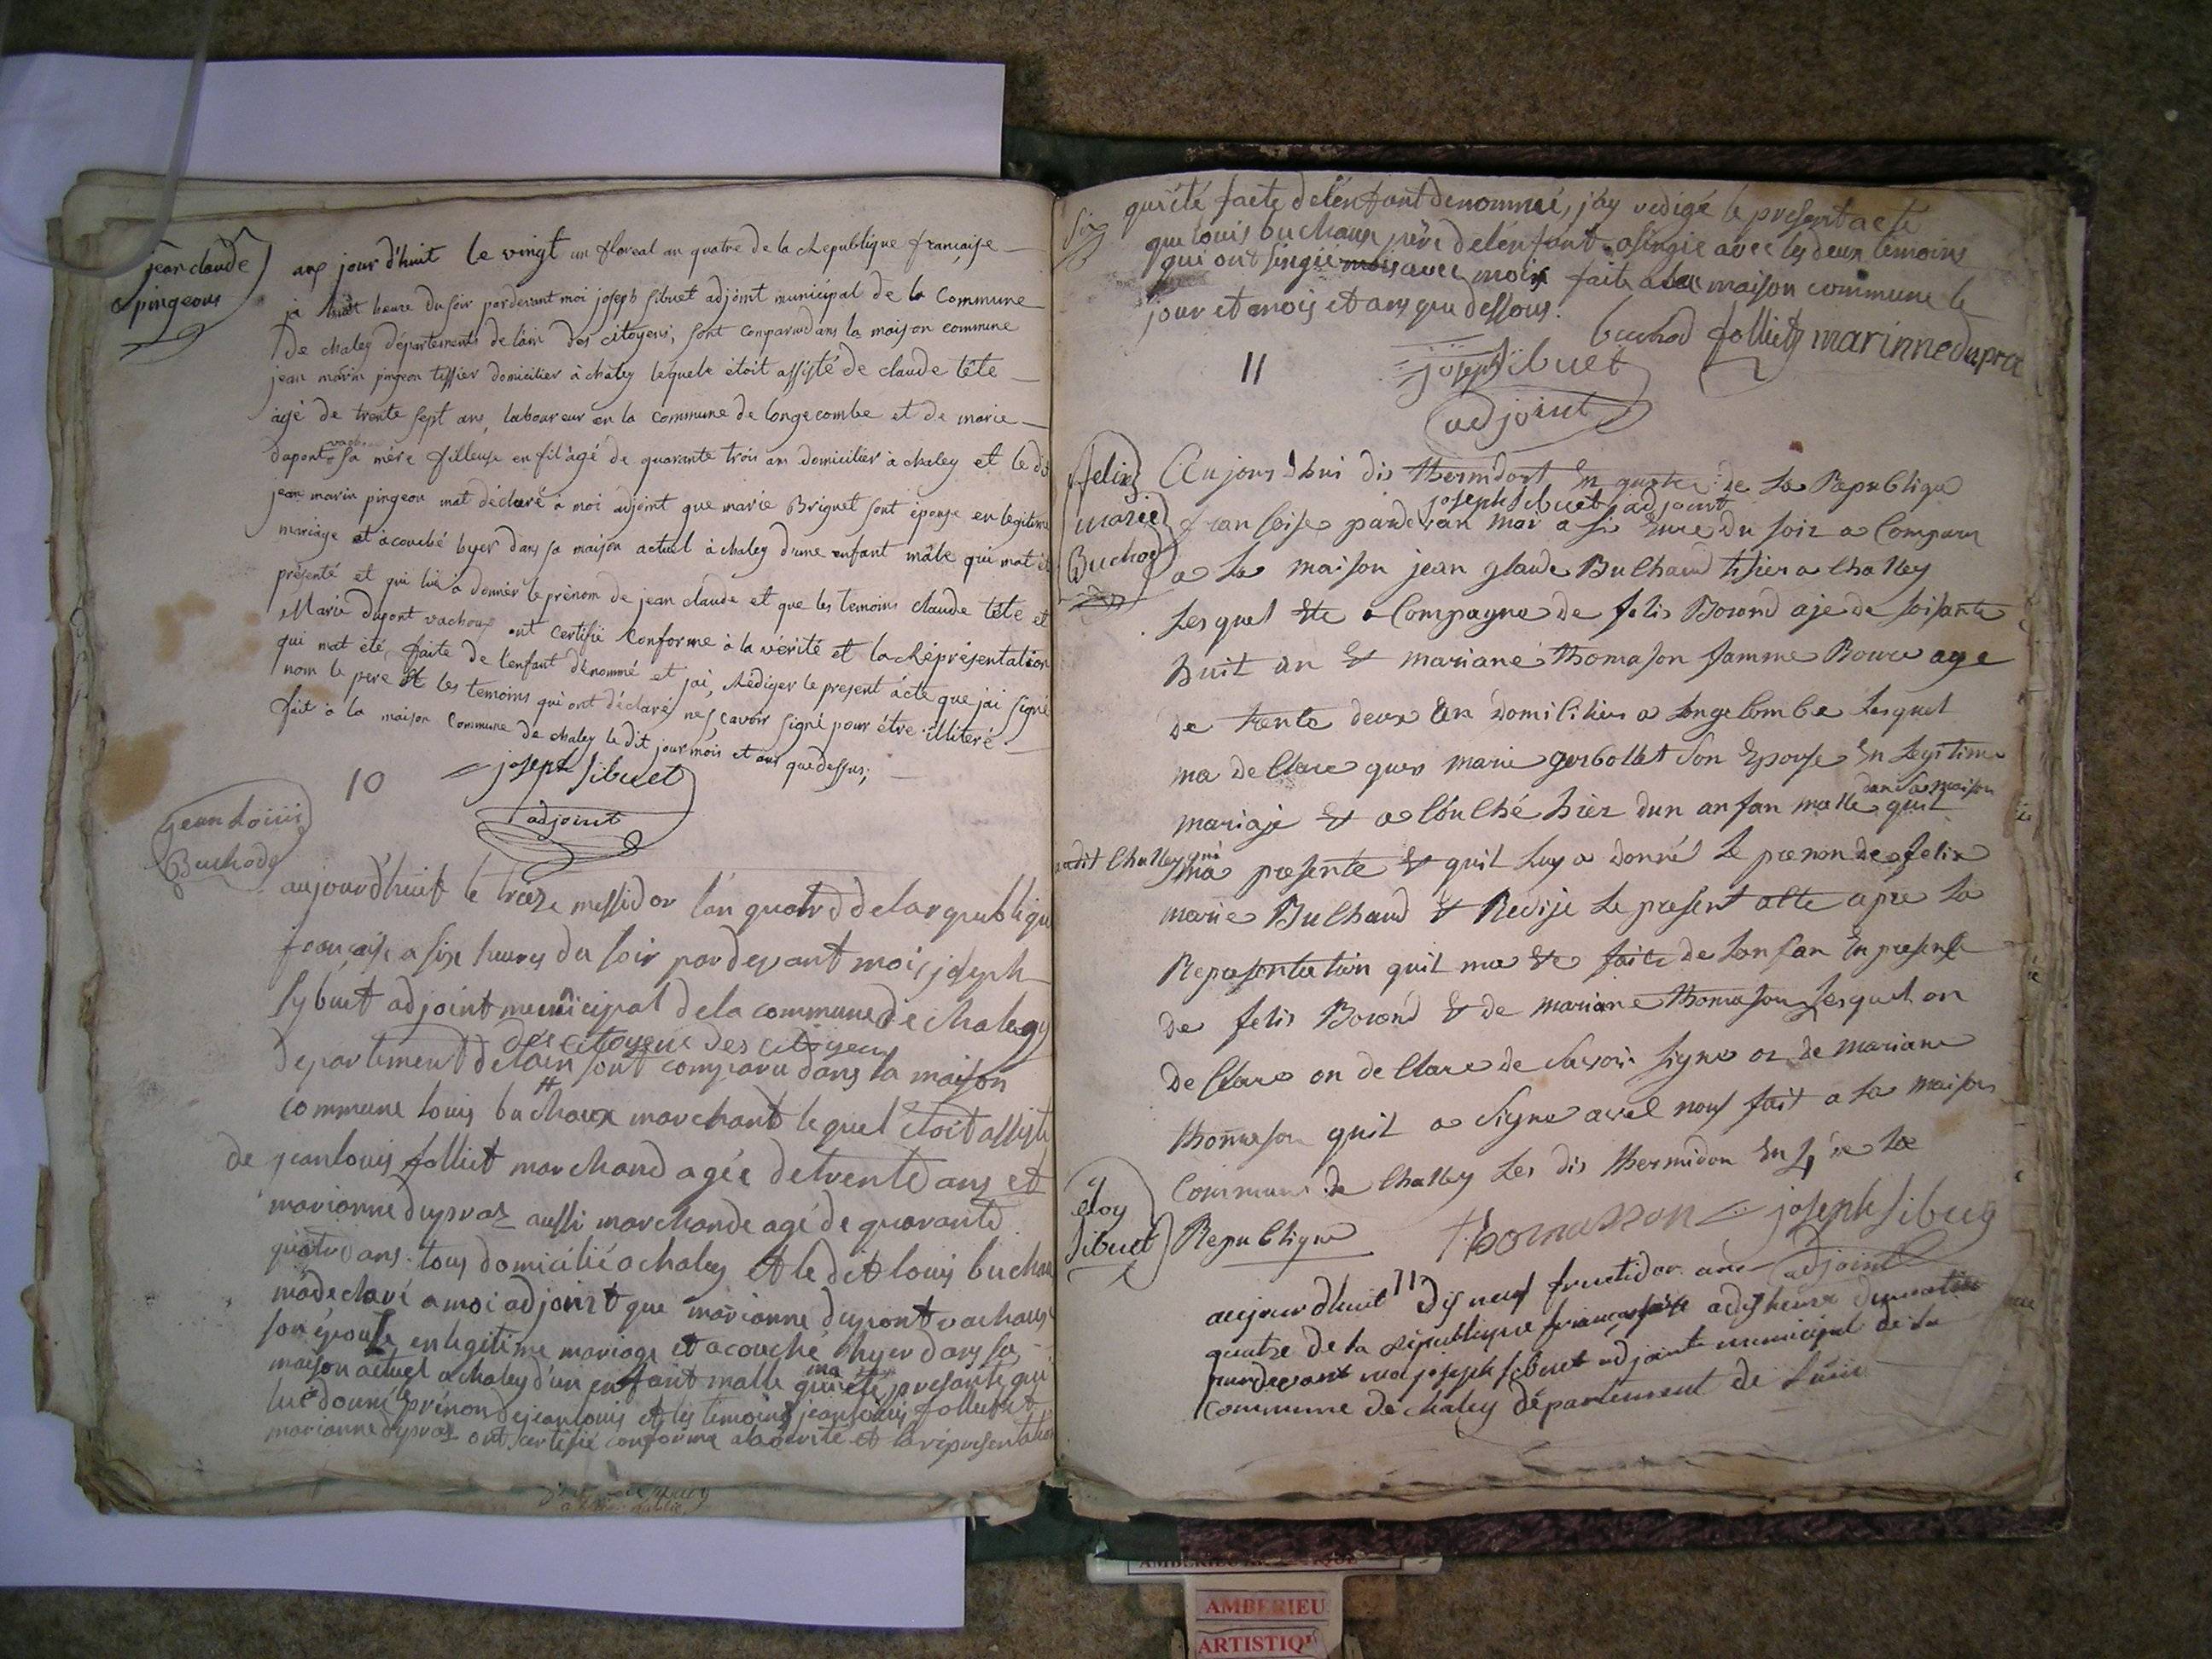 jean claude
pingeons
aux jour d'huit le vingt un floreal an quatre de la Republique française
ja huit heure du soir pardevant moi joseph sibuet adjoint municipal de la Commune
De chaley départements de lain des citoyens, sont comparu dans la maison commune
jean marin pingeon tissier domicilier à chaley lequele étoit assisté de claude tête
agé de trente sept ans, laboureur en la commune de longecombe et de marie
dupont vachou sa mère filleuse en fil âgé de quarante trois ans domicilier à chaley et le dit
jean marin pingeon mat déclaré à moi adjoint que marie Briguet sont épouse en legitime
mariage et àcouché hyer dans sa maison actuel à chaley d'une enfant mâle qui mat été
présenté et qui lui à donner le prénom de jean claude et que les temoins claude tête et
Marie dupont vachoux ont certifié Conforme à la vérité et la Réprésentation
qui mat été, faite de l'enfant dénommé et jai, Rédiger le present àcte que jai signé
nom le pere et les temoins qui ont déclaré nesçavoir signé pour être illiteré
fait à la maison Commune de chaley le dit jour mois et ans que dessus;
joseph sibuet
adjoint
10
jean Louis
Buchode
aujourd'huit le treize messidor l'an quatre de la republique
française a six heures du soir pardevant moi joseph
sybuet adjoint municipal de la commune de chaley
des citoyens des citoyens
departement de lain sont comparu dans la maison
commune louis buchoux marchant lequel étoit assisté
de jean louis folliet marchand agée de trente ans et
marianne dupraz aussi marchande agé de quarante
quatre ans tous domicilié a chaley et le dit louis buchoux
ma declaré a moi adjoint que marianne dupont vachoux
son épouse en legitime mariage et acouché hyer dans sa
maison actuel a chaley d'un enfant malle qui ma été presanté qui
lui a donné le prénon de jean louis et les temoins jean louis folliet et
marianne dupraz ont certifié conforme a la vérité et la répresentation
six
qui été faite de lénfant denommeé, jáy redigé le present acte
que louis buchoux père delénfant a singie avec les deux témoins
qui ont singié mois avec moi fait a la maison commune le
jour et mois et ans que dessous.
buchod folliet marinne dupra
joseph sibuet
adjoint
11
felix
marie
Buchod
Aujourd hui dis thermidort En quatre de La Republique
joseph sibuet adjoint
franseise pardevan moi a sis Eure du soir a Comparu
a La maison jean glaude Buchaud tisier a Challey
Lesquel Ete a Compagne de felis Borond aje de soisante
huit an Et mariane thomason famme Bource age
de trente deux En domilihier a Longelombe Lesquel
ma declare quer marie gerbollet Son Epouse En Legitime
dan sa maison
mariaje Et a Couché hier dun anfan malle quil
a dit Challey
qui ma presente Et quil Luy a donné Le prenon de felix
marie Buchaud Et Redije Le present alte apre La
Representation quil ma Ete faite de Lanfan En presense
de felis Borond Et de mariane thomason Lesquel on
declare on declare de savoir signe or de mariane
thomason quil a signe avec nous fait a La maison
Commune de Challey Les dis thermidor En 4 de La
Republique
thomasson joseph sibuet
adjoint
eloy
sibuet
11
aujourdhuit dis neuf fructidor an
quatre de la république française a dis heure du matin
pardevant moi joseph sibuet adjoint municipal de la
Commune de chaley département de l'ain
AMBERIEU
ARTISTIQ